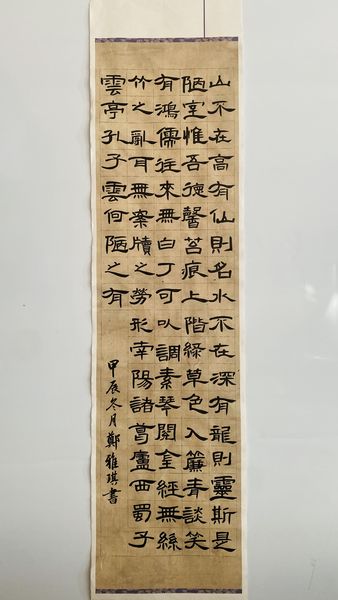 山不在高有仙則名水不在深有龍則靈斯是
陋室惟吾德馨苔痕上階綠草色入簾青談笑
有鴻儒往來無白丁可以調素琴閱金經無絲
竹之亂耳無案牘之勞形南陽諸葛廬西蜀子
雲亭孔子雲何陋之有
甲辰冬月鄭雅琪書